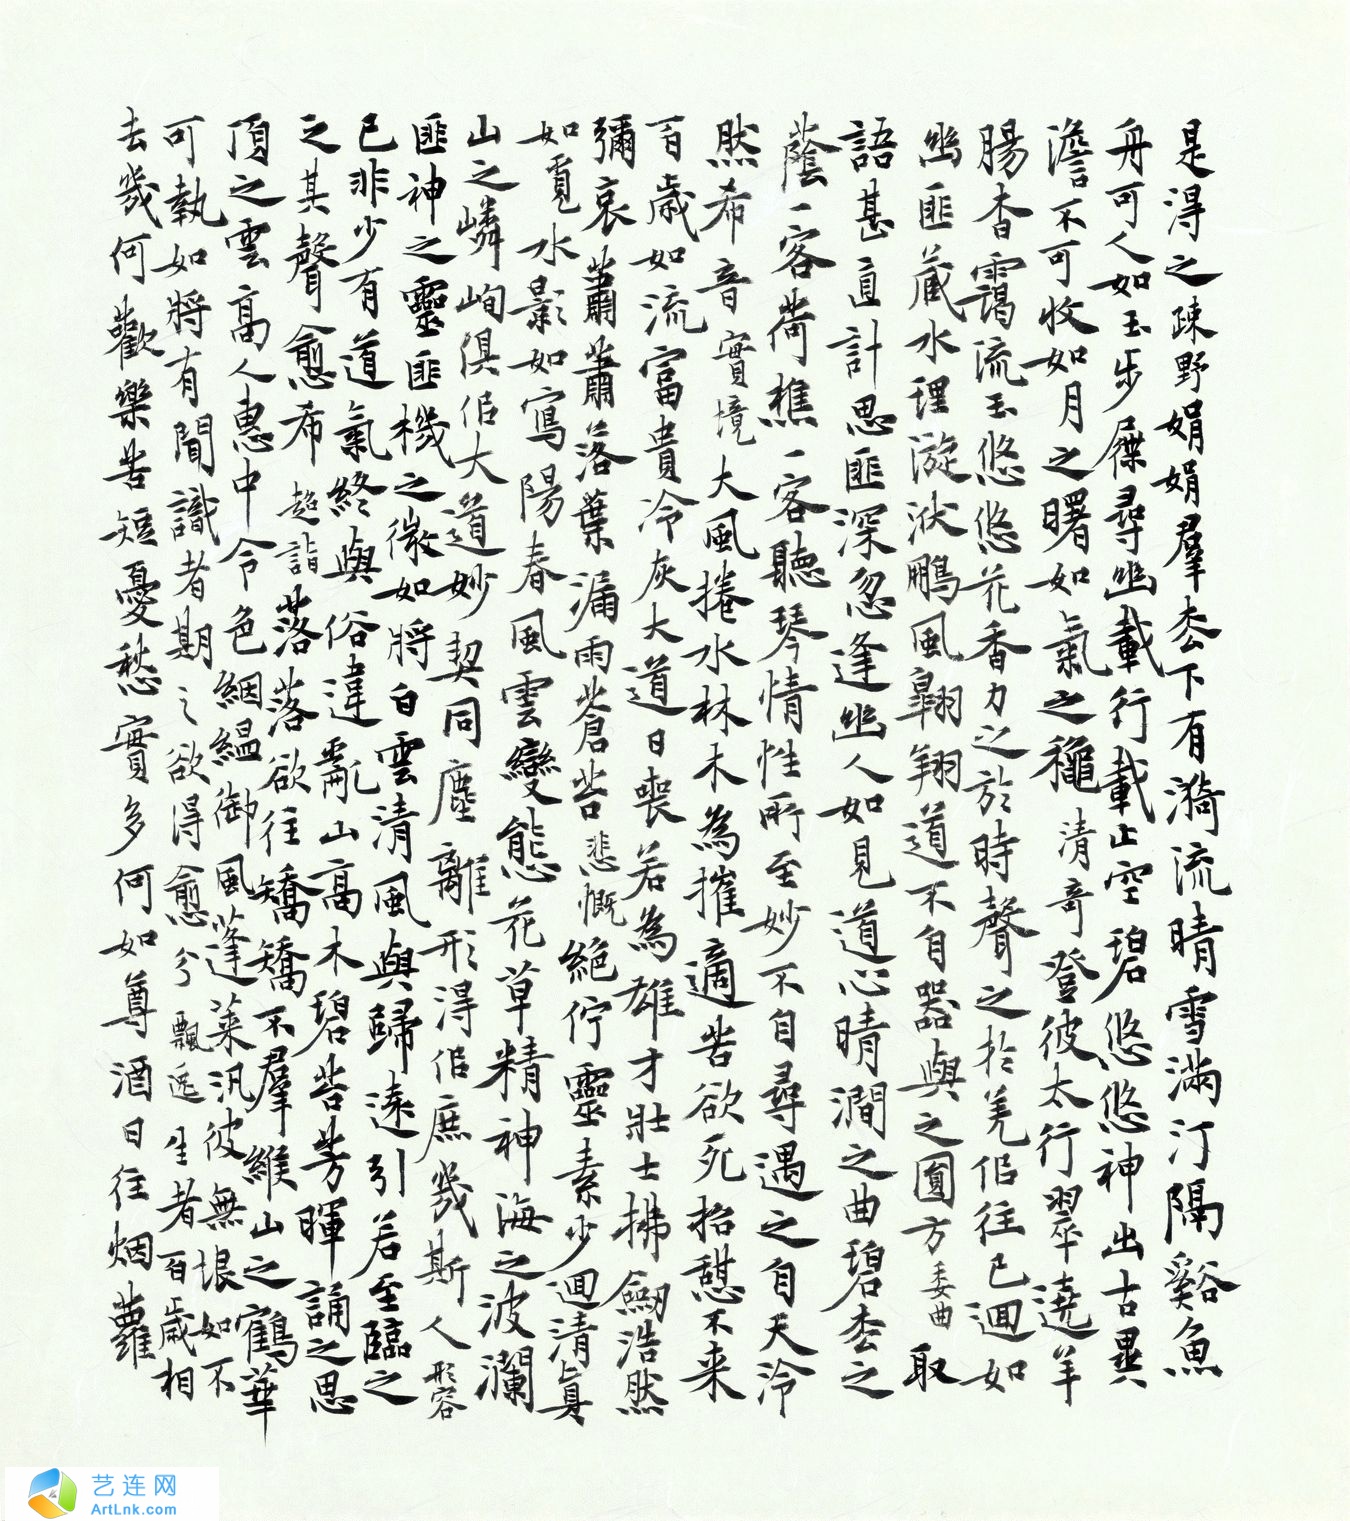 是淂之疎野娟娟羣松下有漪流晴雪滿汀隔谿魚
舟可人如玉步屧尋幽載行載止空碧悠悠神出古異
澹不可收如月之曙如氣之穐清奇登彼太行翠遶羊
腸杳靄流玉悠悠花香力之於時聲之於羌侣往已迴如
幽匪藏水理漩洑鵬風翶翔道不自器與之圓方委曲取
語甚直計思匪深忽逢幽人如見道心晴澗之曲碧松之
蔭一客荷樵一客聽琴情性所至妙不自尋遇之自天泠
然希音實境大風捲水林木為摧適苦欲死招憩不来
百歳如流富貴冷灰大道日喪若為雄才壯士拂劒浩然
彌哀蕭蕭落葉漏雨蒼苔悲慨絶佇靈素少迴清眞
如覓水影如寫陽春風雲變態花草精神海之波瀾
山之嶙峋俱侣大道妙契同塵離形得侣庶幾斯人形容
匪神之靈匪機之微如將白雲清風與歸遠引若至臨之
已非少有道氣終與俗違亂山高木碧苔芳暉誦之思
之其聲愈希超詣落落欲往矯矯不羣緱山之鶴華
頂之雲高人惠中令色絪緼御風蓬葉汎彼無垠如不
可執如將有聞識者期之欲得愈分飄逸生者百歳相
去幾何歡樂苦短憂愁實多何如尊酒日往烟蘿
艺连网
ArtLnk.com